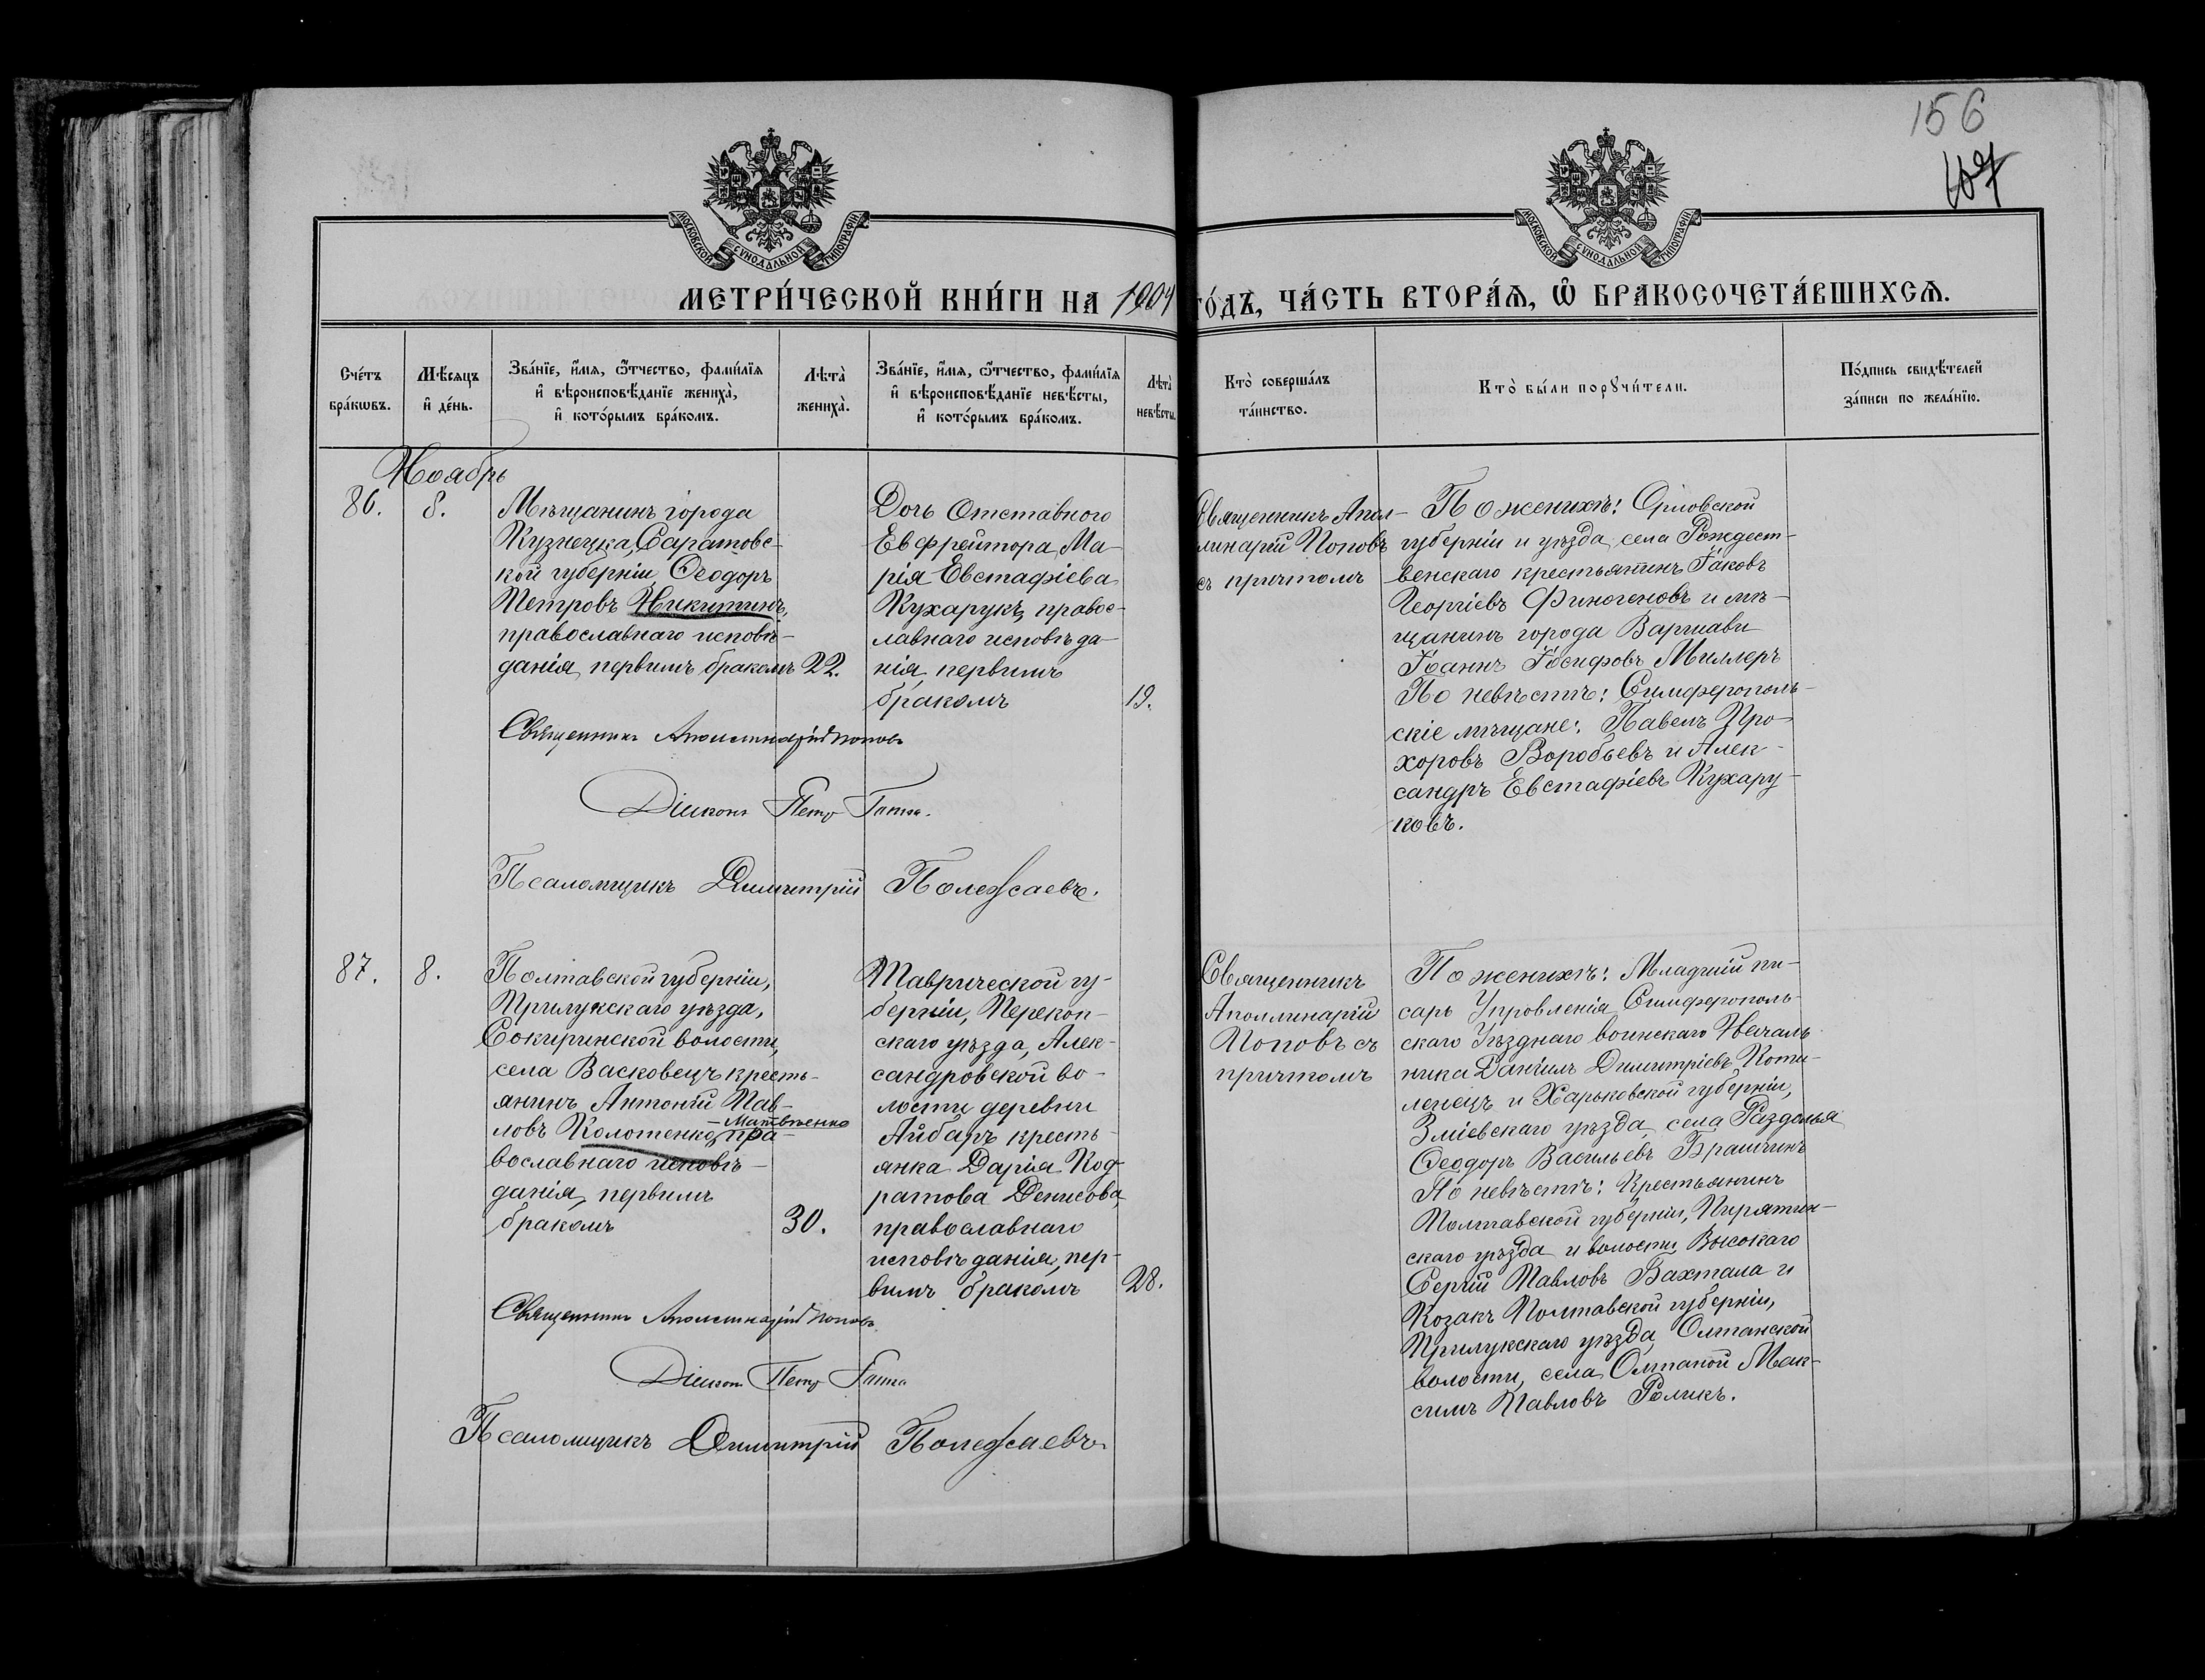 156
107
МОСКОВСКОЙ СѴНОДАЛЬНОЙ ТИПОГРАФІИ
МОСКОВСКОЙ СѴНОДАЛЬНОЙ ТИПОГРАФІИ
МЕТРИ́ЧЕСКОЙ КНИ́ГИ НА 1904 ГО́ДЪ, ЧА́СТЬ ВТОРА́Ѧ, Ѡ҆ БРАКОСОЧЕТА́ВШИХСѦ.
Сче́тъ
бра́кѡвъ.
Мѣ́сѧцъ
и҆ де́нь.
Зва́нїе, и҆́мѧ, ѻ҆́тчество, фами́лїѧ
и҆ вѣроисповѣ́данїе жениха̀,
и҆ кото́рымъ бра́комъ.
Лѣта̀
жениха̀.
Зва́нїе, и҆́мѧ, ѻ҆́тчество, фами́лїѧ
и҆ вѣроисповѣ́данїе невѣ́сты,
и҆ кото́рымъ бра́комъ.
Лѣта̀
невѣ́сты.
Кто̀ соверша́лъ
та́инство.
Кто̀ бы́ли порꙋчи́тели.
По́дпись свидѣ́телей
за́писи по жела́нїю.
Ноябрь
86.
8.
Мѣщанинъ города
Кузнецка, Саратовс-
кой губерніи, Ѳеодоръ
Петровъ Никитинъ,
православнаго исповѣ-
данія, первымъ бракомъ
22.
Дочь Отставного
Ефрейтора, Ма-
рія Евстафіева
Кухарукъ, правос-
лавнаго исповѣда-
нія, первымъ
бракомъ
19.
Священникъ Апол-
линарій Поповъ
съ причтомъ
По женихѣ: Орловской
губерніи и уѣзда, села Рождест-
венскаго крестьянинъ Іаковъ
Георгіевъ Финогеновъ и мѣ-
щанинъ города Варшавы
Іоаннъ Іосифовъ Миллеръ
По невѣстѣ: Симферополь-
скіе мѣщане: Павелъ Про-
хоровъ Воробьевъ и Алек-
сандръ Евстафіевъ Кухару-
ковъ.
Священникъ Аполлинарій Поповъ
Діаконъ Петр
Псаломщикъ Димитрій Полежаевъ.
87.
8.
Полтавской губерніи,
Прилукскаго уѣзда,
Сокиринской волости,
села Васковецъ кресть-
янинъ Антоній Пав-
-Матвѣенко
ловъ Колотенко, пра-
вославнаго исповѣ-
данія, первымъ
бракомъ
30.
Таврической гу-
берніи, Перекоп-
скаго уѣзда, Алек-
сандровской во-
лости деревни
Айбаръ кресть-
янка Дарія Код-
ратова Денисова,
православнаго
исповѣданія, пер-
вымъ бракомъ
28.
Священникъ
Аполлинарій
Поповъ съ
причтомъ
По женихѣ: Младшій пи-
сарь Упровленія Симферополь-
скаго Уѣзднаго воинскаго Началь
ника Даніилъ Димитріевъ Поти-
лецъ и Харьковской губерніи,
Зміевскаго уѣзда, села Раздолья
Ѳеодоръ Васильевъ Брашчинъ
По невѣстѣ: Крестьянинъ
Полтавской губерніи, Пирятин-
скаго уѣзда и волости, Высокаго
Сергій Павловъ Вахтала и
Козакъ Полтавской губерніи,
Прилукскаго уѣзда, Олтанской
волости, села Олтаной Мак-
симъ Павловъ Роликъ.
Священникъ Аполлинарій Поповъ
Діаконъ Петр
Псаломщикъ Димитрій Полежаевъ